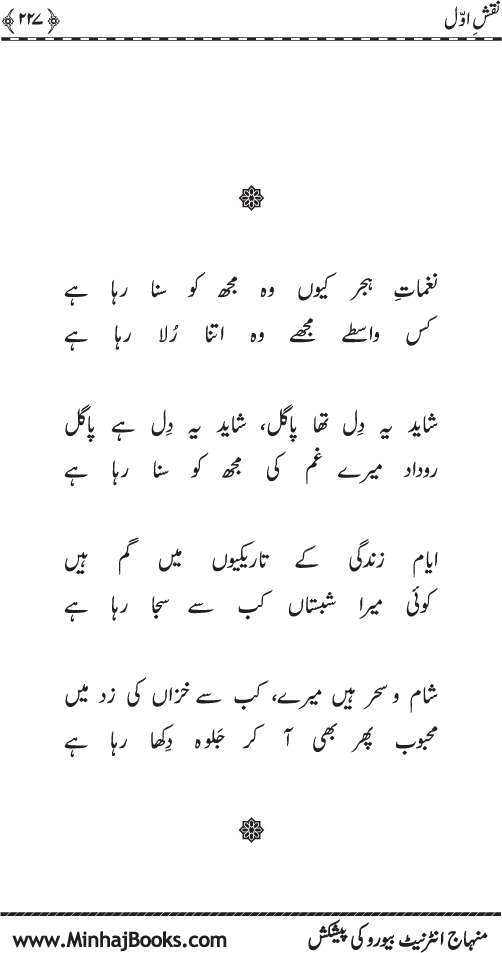 نقشِ اوّل ﴿۲۲۷﴾
نغماتِ ہجر کیوں وہ مجھ کو سنا رہا ہے
کس واسطے مجھے وہ اتنا رُلا رہا ہے
شاید یہ دِل تھا پاگل، شاید یہ دِل ہے پاگل
روداد میرے غم کی مجھ کو سنا رہا ہے
ایام زندگی کے تاریکیوں میں گم ہیں
کوئی میرا شبستاں کب سے سجا رہا ہے
شام و سحر ہیں میرے، کب سے خزاں کی زد میں
محبوب پھر بھی آ کر جَلوہ دِکھا رہا ہے
منہاج انٹرنیٹ بیورو کی پیشکش www.MinhajBooks.com